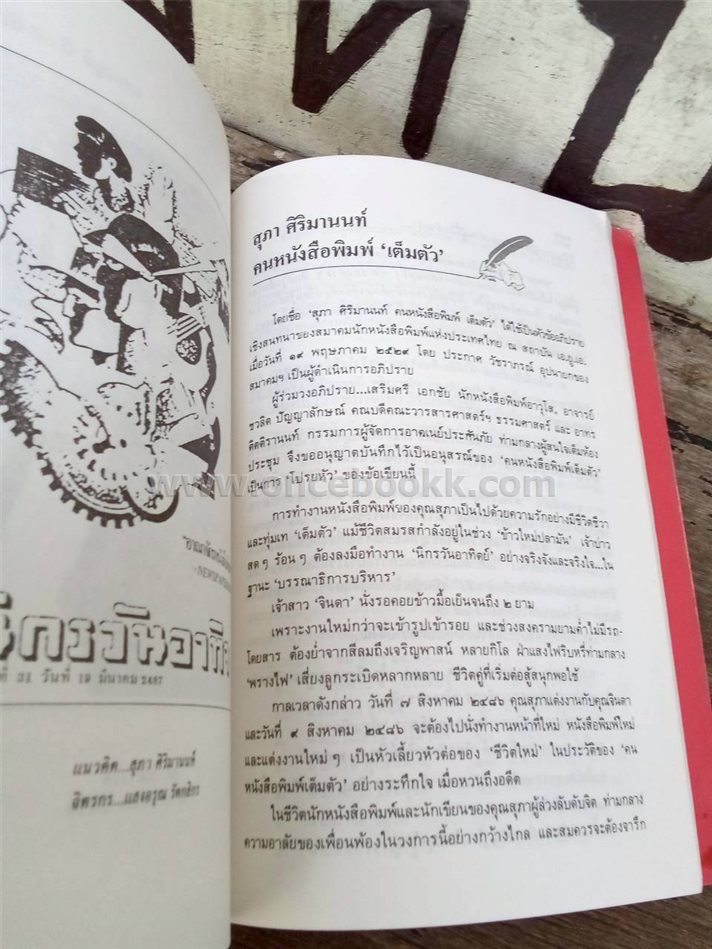 "อาณาจักร
นิกรวันอาทิ
ที่ 21 วันที่ 19 มีนาคม 2487
แนวคิด...สุภา ศิริมานนท์
จิตรกร...แสงอรุณ รัตกสิกร
สุภา ศิริมานนท์
คนหนังสือพิมพ์ 'เต็มตัว'
โดยชื่อ 'สุภา ศิริมานนท์ คนหนังสือพิมพ์ เต็มตัว' ได้ใช้เป็นหัวข้ออภิปราย
เชิงสนทนาของสมาคมนักหนังสือพิมพ์แห่งประเทศไทย ณ สถาบัน เอ.ยู.เอ.
เมื่อวันที่ ๑๙ พฤษภาคม ๒๕๒๙ โดย ประกาศ วัชราภรณ์ อุปนายกของ
สมาคมฯ เป็นผู้ดำเนินการอภิปราย
ผู้ร่วมวงอภิปราย...เสริมศรี เอกชัย นักหนังสือพิมพ์อาวุโส, อาจารย์
ชวลิต ปัญญาลักษณ์ คณบดีคณะวารสารศาสตร์ฯ ธรรมศาสตร์ และ อาทร
ติตติรานนท์ กรรมการผู้จัดการอาคเนย์ประกันภัย ท่ามกลางผู้สนใจเต็มห้อง
ประชุม จึงขออนุญาตบันทึกไว้เป็นอนุสรณ์ของ 'คนหนังสือพิมพ์เต็มตัว'
เป็นการ 'โปรยหัว' ของข้อเขียนนี้
www.oncebookk.com
การทำงานหนังสือพิมพ์ของคุณสุภาเป็นไปด้วยความรักอย่างมีชีวิตชีวา
และทุ่มเท 'เต็มตัว' แม้ชีวิตสมรสกำลังอยู่ในช่วง 'ข้าวใหม่ปลามัน' เจ้าบ่าว
สด ๆ ร้อน ๆ ต้องลงมือทำงาน 'นิกรวันอาทิตย์' อย่างจริงจังและจริงใจ...ใน
ฐานะ 'บรรณาธิการบริหาร'
เจ้าสาว 'จินดา' นั่งรอคอยข้าวมื้อเย็นจนถึง ๒ ยาม
เพราะงานใหม่กว่าจะเข้ารูปเข้ารอย และช่วงสงครามยามค่ำไม่มีรถ-
โดยสาร ต้องย่ำจากสีลมถึงเจริญพาสน์ หลายกิโล ฝ่าแสงไฟริบหรี่ท่ามกลาง
'พรางไฟ' เสี่ยงลูกระเบิดหลากหลาย ชีวิตคู่ที่เริ่มต่อสู้สนุกพอใช้
กาลเวลาดังกล่าว วันที่ ๗ สิงหาคม ๒๔๘๖ คุณสุภาแต่งงานกับคุณจินดา
และวันที่ ๙ สิงหาคม ๒๔๘๖ จะต้องไปนั่งทำงานหน้าที่ใหม่ หนังสือพิมพ์ใหม่
และแต่งงานใหม่ ๆ เป็นหัวเลี้ยวหัวต่อของ 'ชีวิตใหม่' ในประวัติของ 'คน
หนังสือพิมพ์เต็มตัว' อย่างระทึกใจ เมื่อหวนถึงอดีต
ในชีวิตนักหนังสือพิมพ์และนักเขียนของคุณสุภาผู้ล่วงลับดับจิต ท่ามกลาง
ความอาลัยของเพื่อนพ้องในวงการนี้อย่างกว้างไกล และสมควรจะต้องจารึก